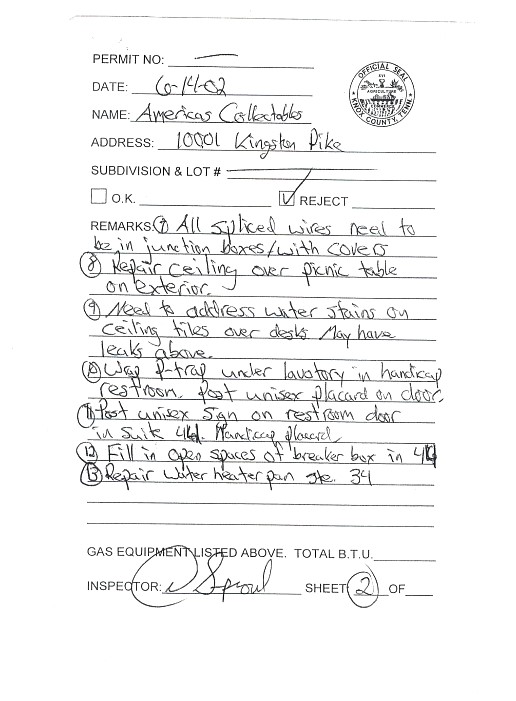 PERMIT NO: —
DATE: 6-14-02
NAME: Americas Collectables
ADDRESS: 10001 Kingston Pike
OFFICIAL SEAL
AGRICULTURE
KNOX COUNTY, TENN.
SUBDIVISION & LOT # —
O.K. ☑ REJECT
REMARKS: ⑦ All spliced wires need to
be in junction boxes/with covers
⑧ Repair ceiling over picnic table
on exterior.
⑨ Need to address water stains on
ceiling tiles over desks May have
leaks above.
⑩ Wrap P-trap under lavatory in handicap
restroom. Post unisex placard on door.
⑪ Post unisex sign on restroom door
in Suite 44. Handicap placard.
⑫ Fill in open spaces of breaker box in 44
⑬ Repair water heater pan ste. 34
GAS EQUIPMENT LISTED ABOVE. TOTAL B.T.U.
INSPECTOR: Sproul SHEET 2 OF